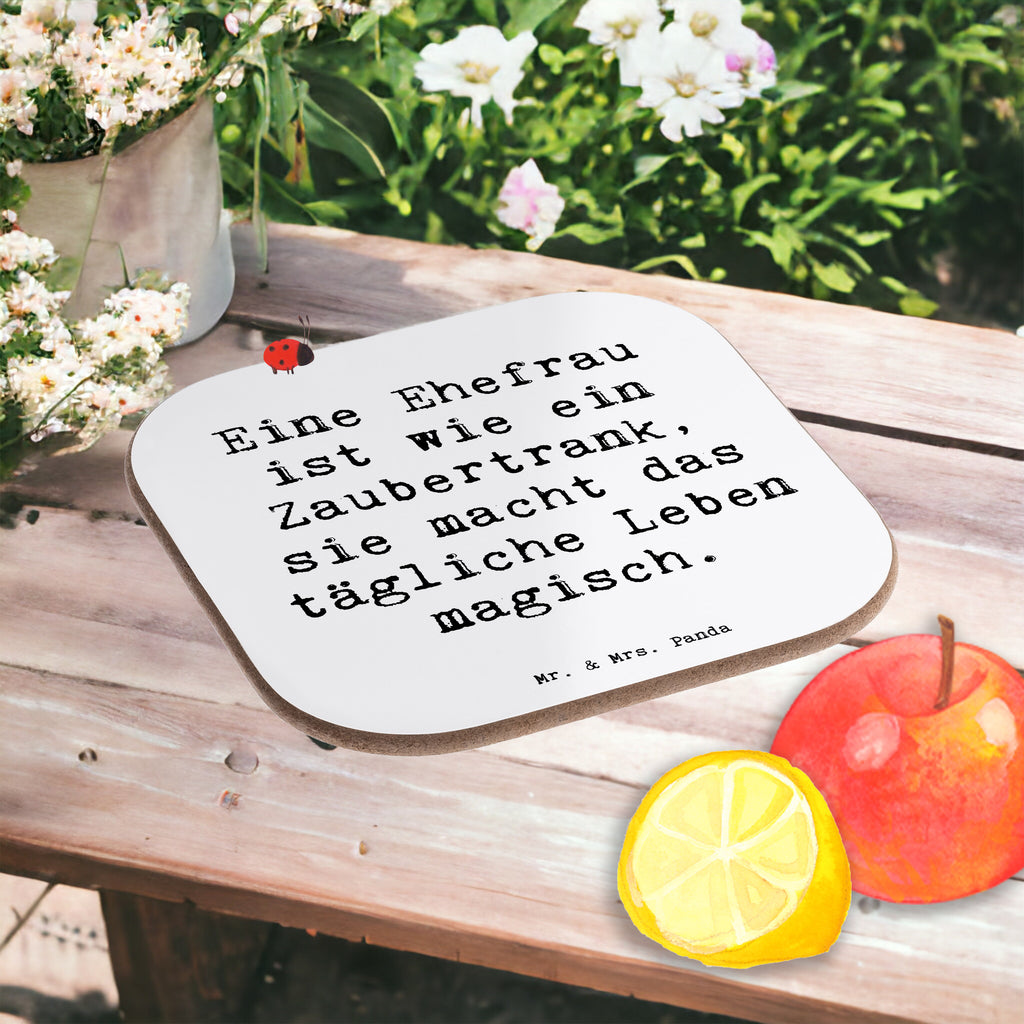 Eine Ehefrau
ist wie ein
Zaubertrank,
sie macht das
tägliche Leben
magisch.
Mr. & Mrs. Panda